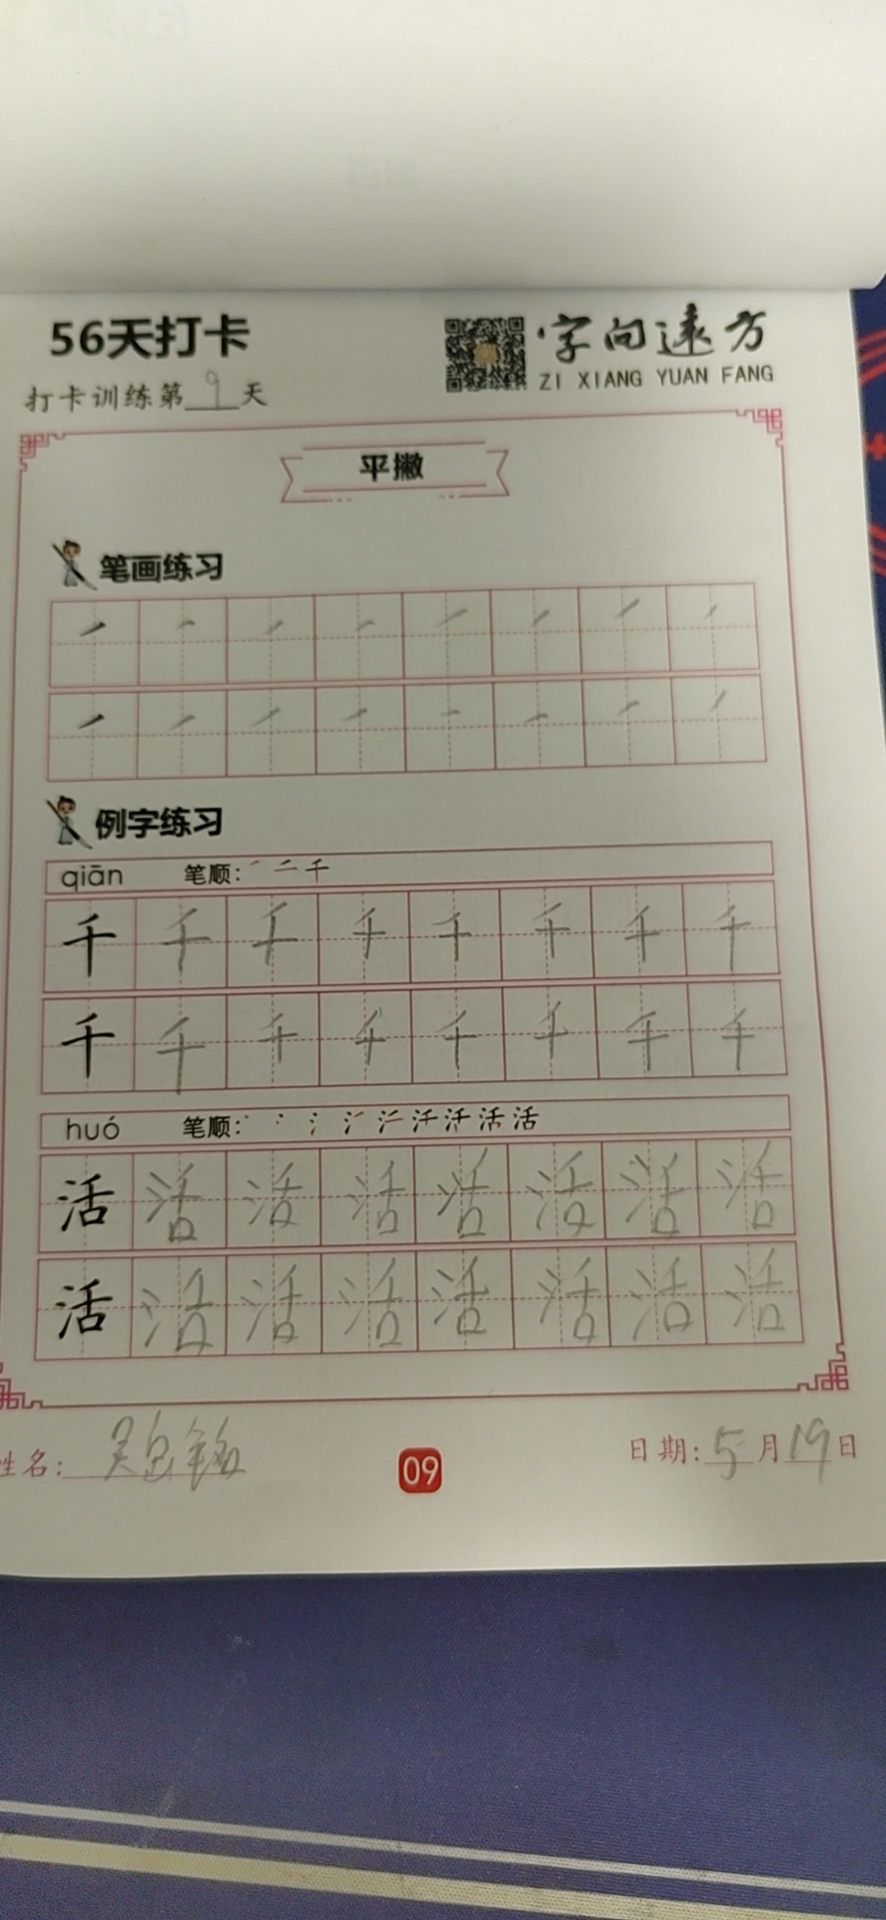 56天打卡
字向远方
ZI XIANG YUAN FANG
打卡训练第9天
平撇
笔画练习
例字练习
qiān 笔顺: ㇒ 二 千
千 千 千 千 千 千 千 千
千 千 千 千 千 千 千 千
huó 笔顺: 活
活 活 活 活 活 活 活 活
活 活 活 活 活 活 活 活
姓名:
09
日期:5月19日